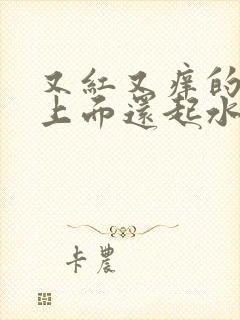 又紅又痒的
上而還起水
卡農